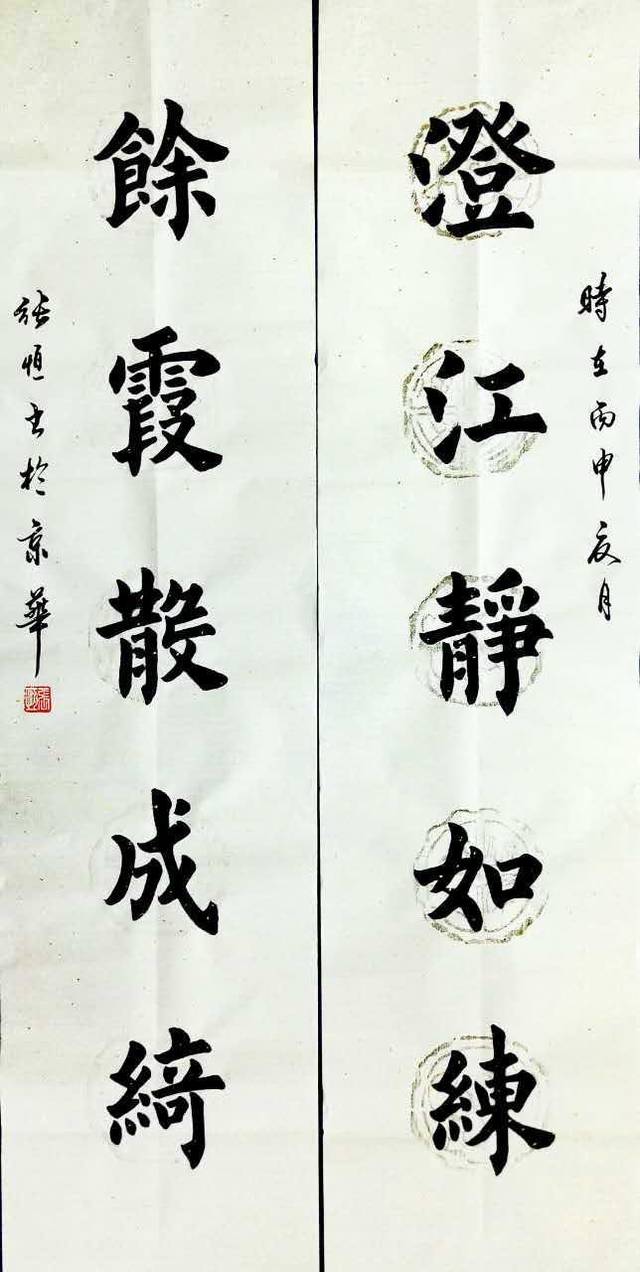 時在丙申亥月
澄江靜如練
餘霞散成綺
張恒书於京華